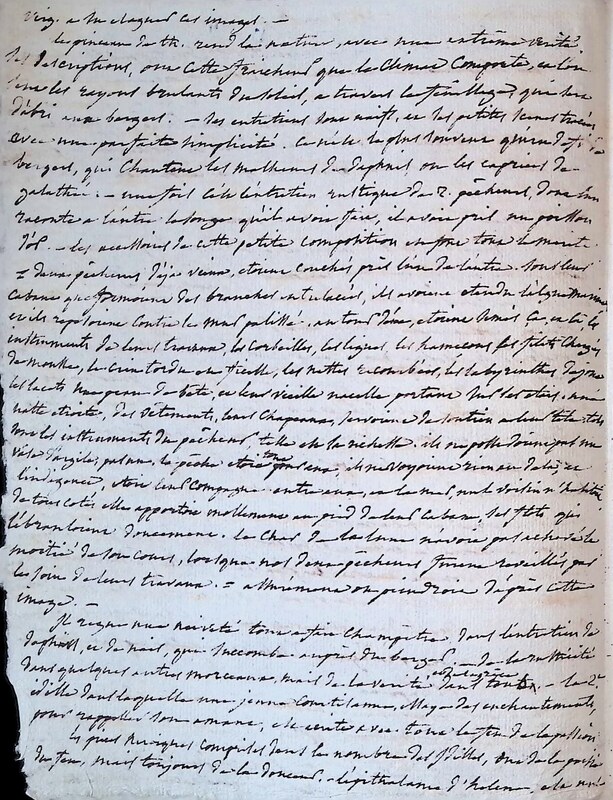 virg. a su élaguer ces images. —
le pinceau de th. rend la nature, avec une extrême vérité
les descriptions, ont cette fraicheur que le Climat Comporte, et l'on
sent les rayons brulants du soleil, a travers le feuillage, qui sert
d'abri aux bergers. — les entretiens sont naifs, et les petites scenes tracées
avec une parfaite simplicité. ce sont le plus souvent
bergers, qui Chantent les malheurs de daphnis ou les caprices de
galathée. — une fois c'est l'entretien rustique de 2. pêcheurs, dont l'un
raconte a l'autre le songe qu'il avoit fait, il avoit pris un poisson
d'or. — les accessoires de cette petite composition en font tout le mérite.
= deux pêcheurs déja vieux, etoient couchés près l'un de l'autre. sous leur
cabane que formoient des branches entrelacées, ils avoient etendu l'algue marine
et ils reposoient contre le mur palissé. autour d'eux, etoient semés ça, et là les
instruments de leurs travaux, les corbeilles, les lignes, les hameçons,
les nattes
les lacets une peau de bête, et leur vieille nacelle portant sur ses etais. une
natte etroite, des vêtements, leurs Chapeaux, servoient de soutien a leur tête. tels
sont les instruments du pêcheur, telle est la richesse. ils ne possedoient pas un
vase d'argile; pas un. la pêche etoit tout pour eux, ils ne voyoient rien au delà, et
l'indigence, etoit leur compagne. entre eux, et la mer, nul voisin n'habitoit
de tous cotés elle apportoit mollement au pied de leur cabane, ses flots qui
l'ébranloient doucement. le Char de la lune n'avoit pas achevé la
moitié de son cours, lorsque nos deux pêcheurs furent reveillés par
le soin de leurs travaux. = assurément on peindroit d'après cette
image. —
Il regne une naiveté tout a fait Champêtre dans l'entretien de
daphnis, et de nais, qui succombe auprès du berger, — de la rusticité
dans quelques autres morceaux, mais de la verité et de la grace dans toutes. — la 2e
idille dans laquelle une jeune Courtisanne, essaye des enchantements,
pour rappeller son amant, est ecrite avec tout le feu de la passion
les pieces lyriques comprises dans le nombre des Idilles, ont de la poësie
du feu, mais toujours de la douceur. l'epithalame d'helene, et la mort